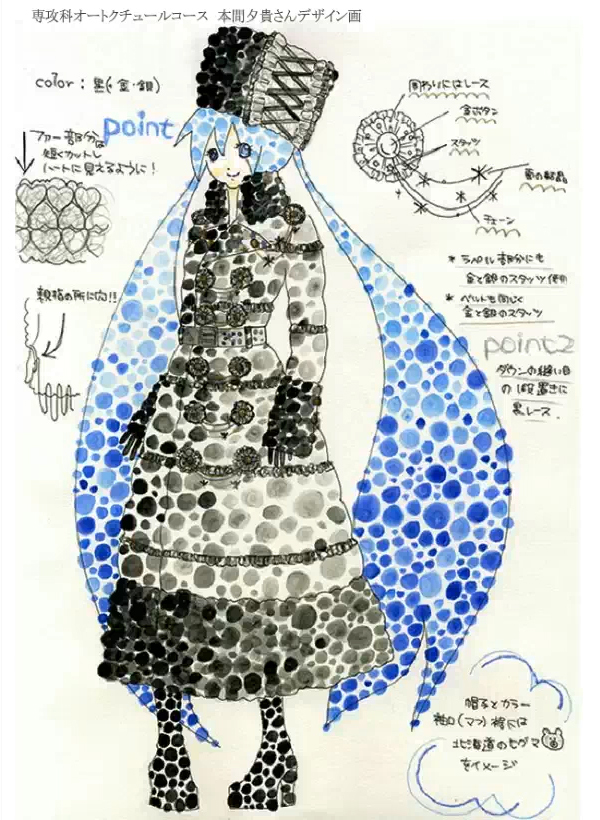 専攻科オートクチュールコース 本間夕貴さんデザイン画
color : 黒(・金・銀)
point
ファー部分は
短くカットし
ハートに見えるように!
親指の所に向!!
周わりにはレース
金ボタン
スタッツ
チェーン
* ラペル部分にも
金と銀のスタッツ使用
* ベルトも同じく
金と銀のスタッツ
point2
ダウンの縫い目
の1段置きに
黒レース.
帽子とカラー
袖口(マフ)裾には
北海道のヒグマ
をイメージ